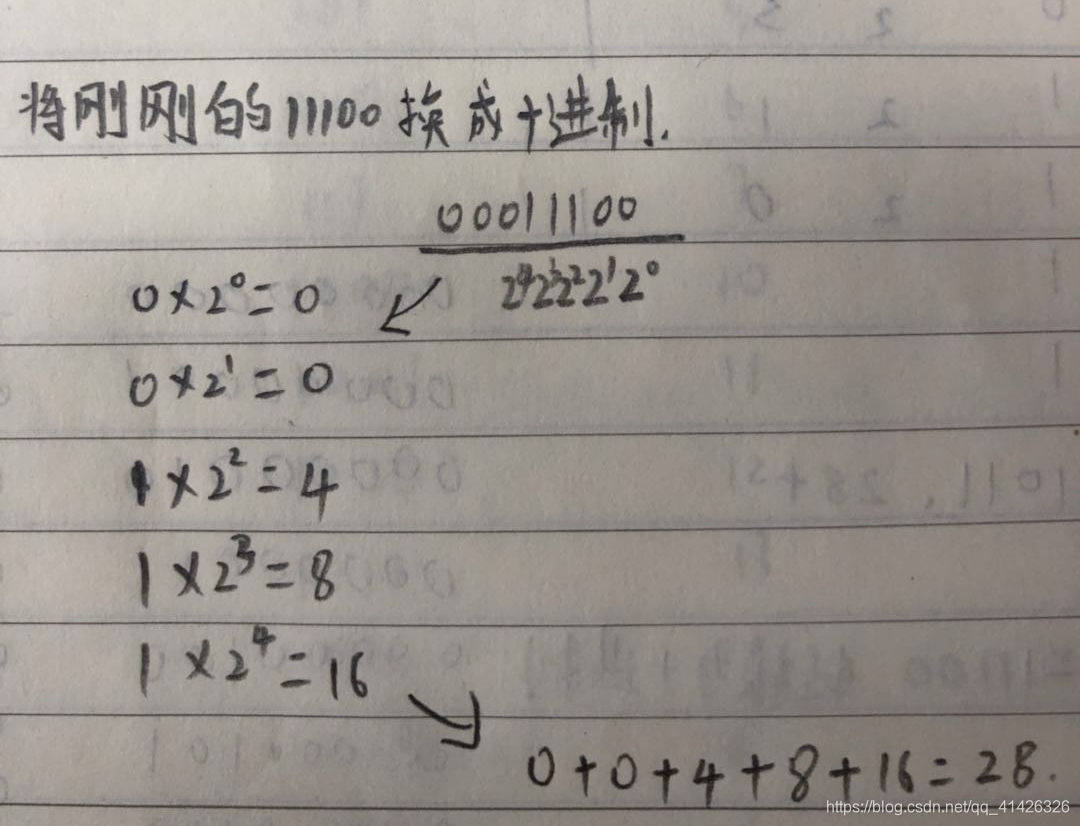 将刚刚的11100换成十进制.
00011100
2⁴2³2²2¹2⁰
0×2⁰=0
0×2¹=0
1×2²=4
1×2³=8
1×2⁴=16
0+0+4+8+16=28.
https://blog.csdn.net/qq_41426326